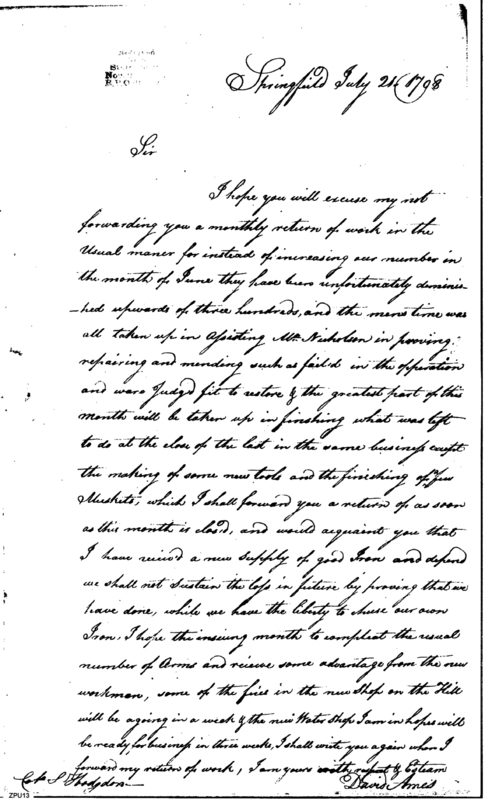 Springfield July 21 1798
Sir
I hope you will excuse my not
forwarding you a monthly return of work in the
Usual maner for instead of increasing our number in
the month of June they have been unfortunately deminis-
-hed upwards of three hundreds, and the mens time was
all taken up in Assisting Mr. Nicholson in proving,
repairing and mending such as fail'd in the opperation
and ware Judg'd fit to restore & the greatest part of this
month will be taken up in finshing what was left
to do at the close of the last in the same business except
the making of some new tools and the finishing of few
Muskets, which I shall forward you a return of as soon
as this month is clos'd, and would acquaint you that
I have reciev'd a new supply of good Iron and depend
we shall not Sustain the loss in future by proving that we
have done, while we have the liberty to chuse our own
Iron, I hope the insuing month to compleat the usual
number of Arms and recieve some advantage from the new
workmen, some of the fires in the new Shop on the Hill
will be agoing in a week & the new Water Shop I am in hopes will
be ready for business in three weeks, I shall write you again when I
forward my return of work, I am yours with respect & Esteam
Cap S Hodgdon
David Ames
ZPU13